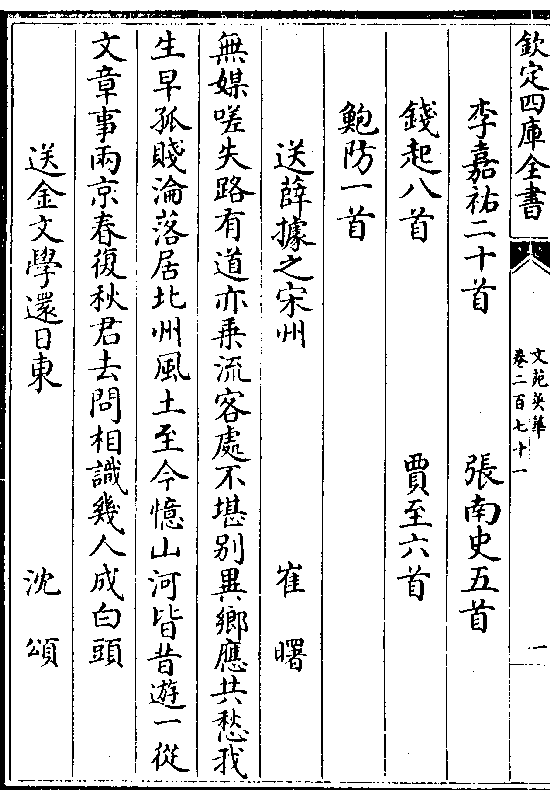 欽定四庫全書
文苑英華
卷二百七十一
一
李嘉祐二十首 張南史五首
錢起八首 賈至六首
鮑防一首
送薛據之宋州 崔曙
無媒嗟失路有道亦乗流客處不堪别異鄉應共愁我
生早孤賤淪落居北州風土至今憶山河皆昔遊一從
文章事兩京春復秋君去問相識幾人成白頭
送金文學還日東 沈頌